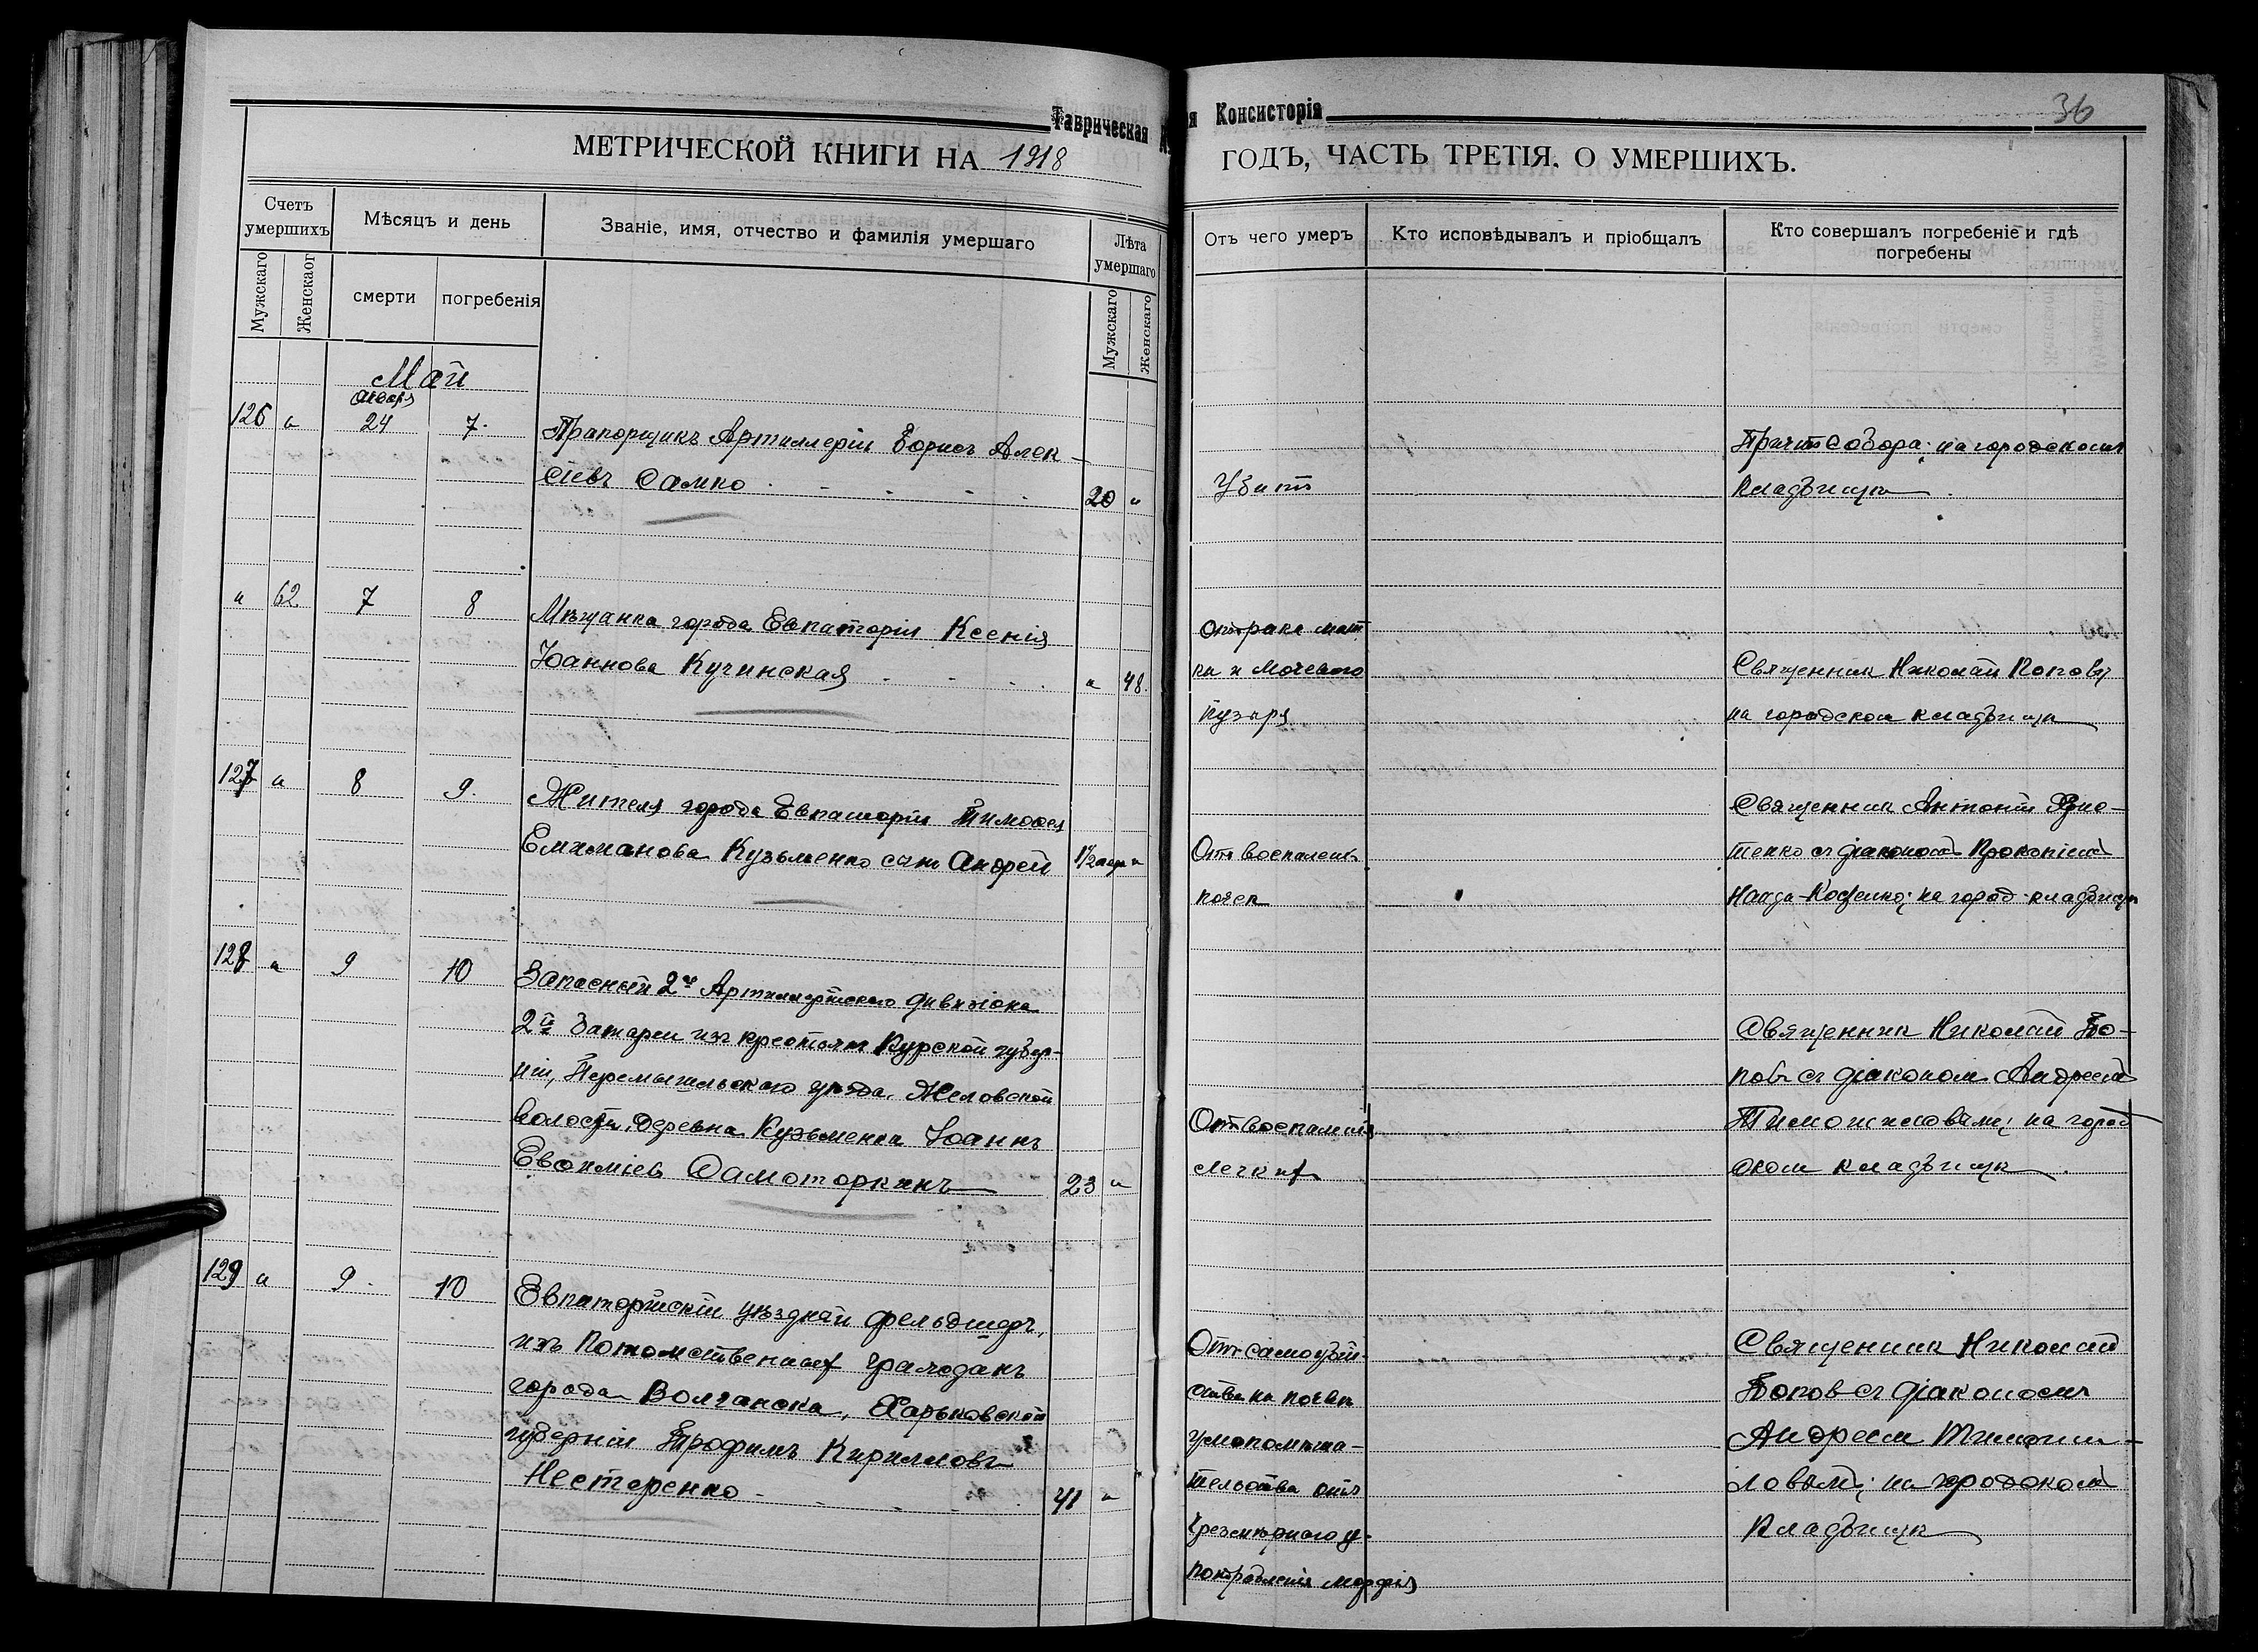 Таврическая Консисторія
36
МЕТРИЧЕСКОЙ КНИГИ НА 1918 ГОДЪ, ЧАСТЬ ТРЕТІЯ. О УМЕРШИХЪ.
Счетъ умершихъ
Мѣсяцъ и день
Званіе, имя, отчество и фамилія умершаго
Лѣта умершаго
Отъ чего умеръ
Кто исповѣдывалъ и пріобщалъ
Кто совершалъ погребеніе и гдѣ погребены
Мужскаго
Женскаог
смерти
погребенія
Мужскаго
Женскаго
Май
Январь
126 " 24 7.
Прапорщикъ Артиллеріи Борисъ Алек-
сіевъ Самко
20 "
Убитъ
Причтъ Собора; на городскомъ
кладбищѣ
" 62 7 8
Мѣщанка города Евпаторіи Ксенія
Іоаннова Кучинская
" 48.
Отъ рака мат
ки и мочевого
пузыря
Священник Николай Поповъ;
на городском кладбищѣ
127 " 8 9.
Жителя города Евпаторіи Тимоѳея
Кузьменко сын Андрей
"
От воспаленія
почек
Священник Антоній
тенко съ діакономъ Прокопіемъ
на город. кладбищѣ
128 " 9 10
Запасный 2го Артиллерійского дивизіона
2й Батареи изъ крестьян Курской губер-
ніи, Перемышльскаго уѣзда, Жел овской
волости, деревна Кузьменка Іоаннъ
Евѳиміевъ Самоторкинъ
23 "
От воспаленія
легких
Священник Николай По-
повъ съ діаконом Андреемъ
на город
ском кладбищѣ
129 " 9 10
Евпаторійскій уѣздный фельдшеръ,
изъ Потомственных гражданъ
города Волчанска, Харьковской
губерніи Трофимъ Кирилловъ
Нестеренко
41 "
От самоубій-
ства на почвѣ
умопомѣша-
тельства отъ
чрезмѣрного у-
потребленія морфія
Священник Николай
Попов съ діакономъ
Андреем
ловымъ; на городском
кладбищѣ